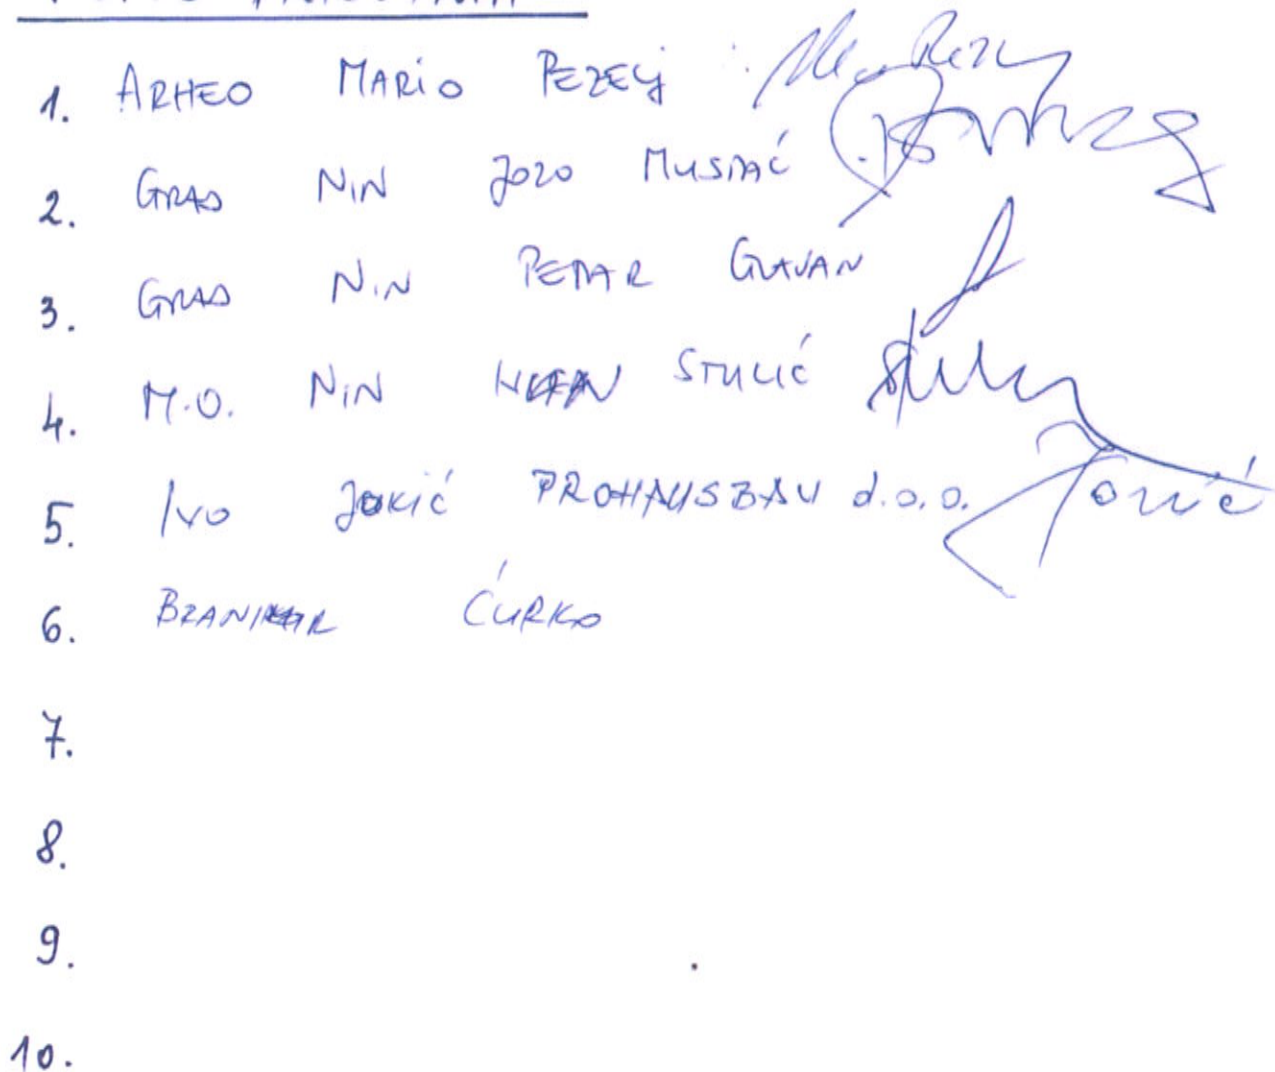 1. ARHEO MARIO PEZELJ
2. GRAD NIN JOZO MUSTAĆ
3. GRAD NIN PETAR GLAVAN
4. M.O. NIN STULIĆ
5. IVO JOKIĆ PROHAUSBAU d.o.o.
6. BRANIMIR ĆURKO
7.
8.
9.
10.